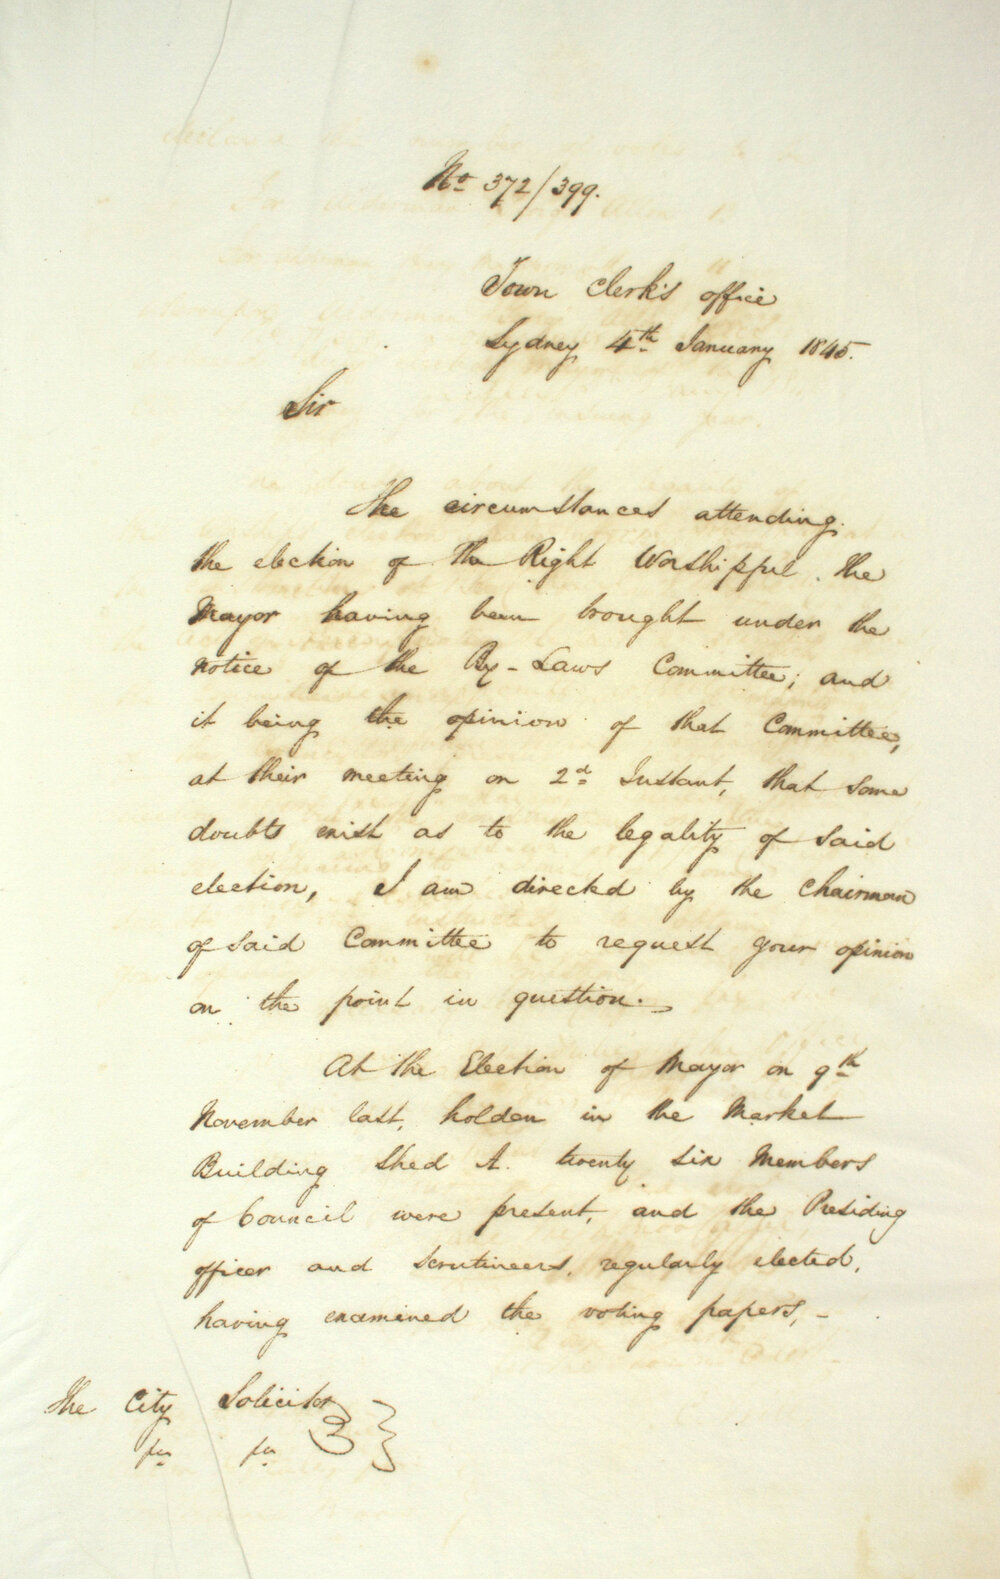 No 372/399.
Town Clerk's office
Sydney 4th January 1845.
Sir
The circumstances attending
the election of The Right Worshipful the
Mayor having been brought under the
notice of the By-Laws Committee; and
it being the opinion of that Committee,
at their meeting on 2d Instant, that some
doubts exist as to the legality of said
election, I am directed by the Chairman
of said Committee to request your opinion
on the point in question.
At the Election of Mayor on 9th
November last, holden in the Market
Building Shed A. twenty six Members
of Council were present, and the Presiding
officer and Scrutineers, regularly elected,
having examined the voting papers, -
The City Solicitor